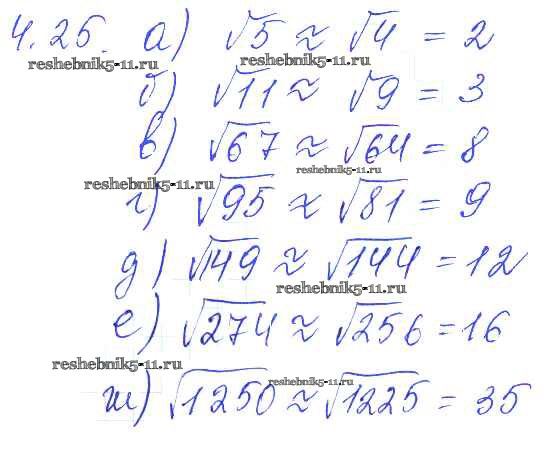 4.25. а) √5 ≈ √4 = 2
reshebnik5-11.ru reshebnik5-11.ru
б) √11 ≈ √9 = 3
в) √67 ≈ √64 = 8
reshebnik5-11.ru
reshebnik5-11.ru
г) √95 ≈ √81 = 9
д) √149 ≈ √144 = 12
reshebnik5-11.ru
е) √274 ≈ √256 = 16
reshebnik5-11.ru
reshebnik5-11.ru
ж) √1250 ≈ √1225 = 35